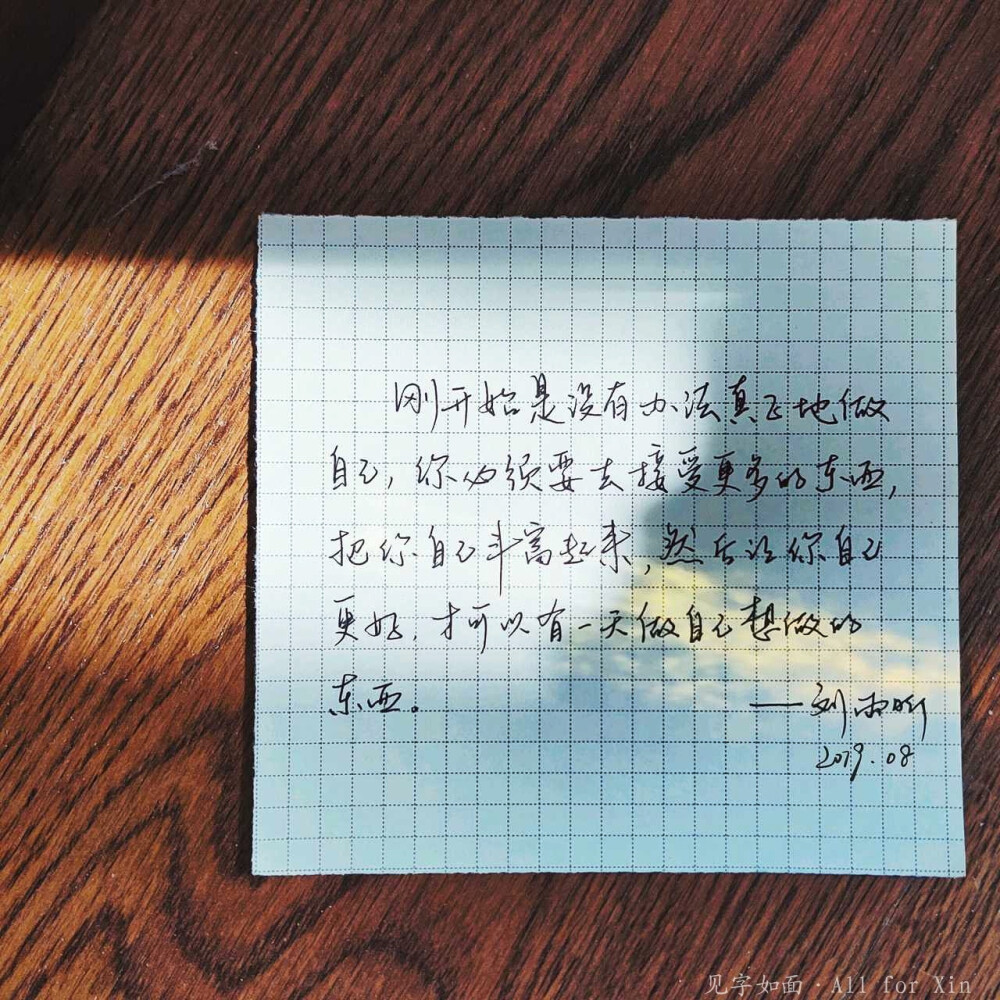 刚开始是没有办法真正地做
自己，你必须要去接受更多的东西，
把你自己丰富起来，然后让你自己
更好，才可以有一天做自己想做的
东西。
——刘雨昕
2019.08
见字如面·All for Xin